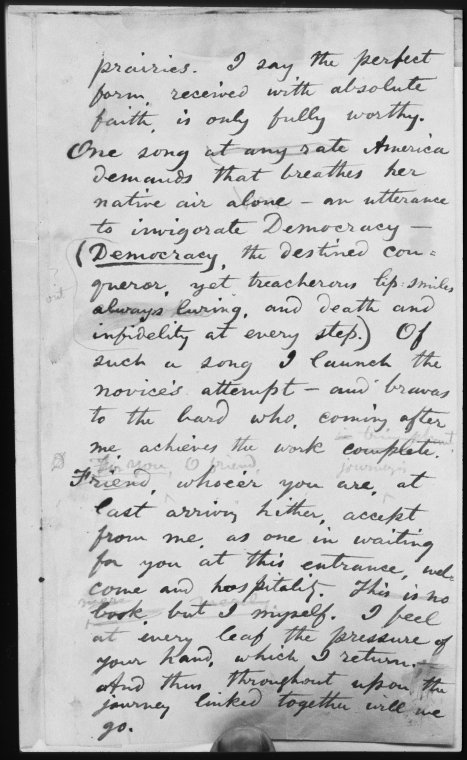 prairies. I say the perfect
form, received with absolute
faith, is only fully worthy.
One song at any rate America
demands that breathes her
native air alone — an utterance
to invigorate Democracy —
(Democracy, the destined con=
queror, yet treacherous lip-smiles
out
always luring, and death and
infidelity at every step.) Of
such a song I launch the
novice's attempt — and bravas
to the bard who, coming after
me, achieves the work complete.
For you, O friend,
journeyer
Friend, whoe'er you are, at
last arriving hither, accept
from me, as one in waiting
for you at this entrance, wel-
come and hospitality. This is no
mere
book, but I myself. I feel
at every leaf the pressure of
your hand, which I return.—
And thus throughout upon the
journey linked together will we
go.